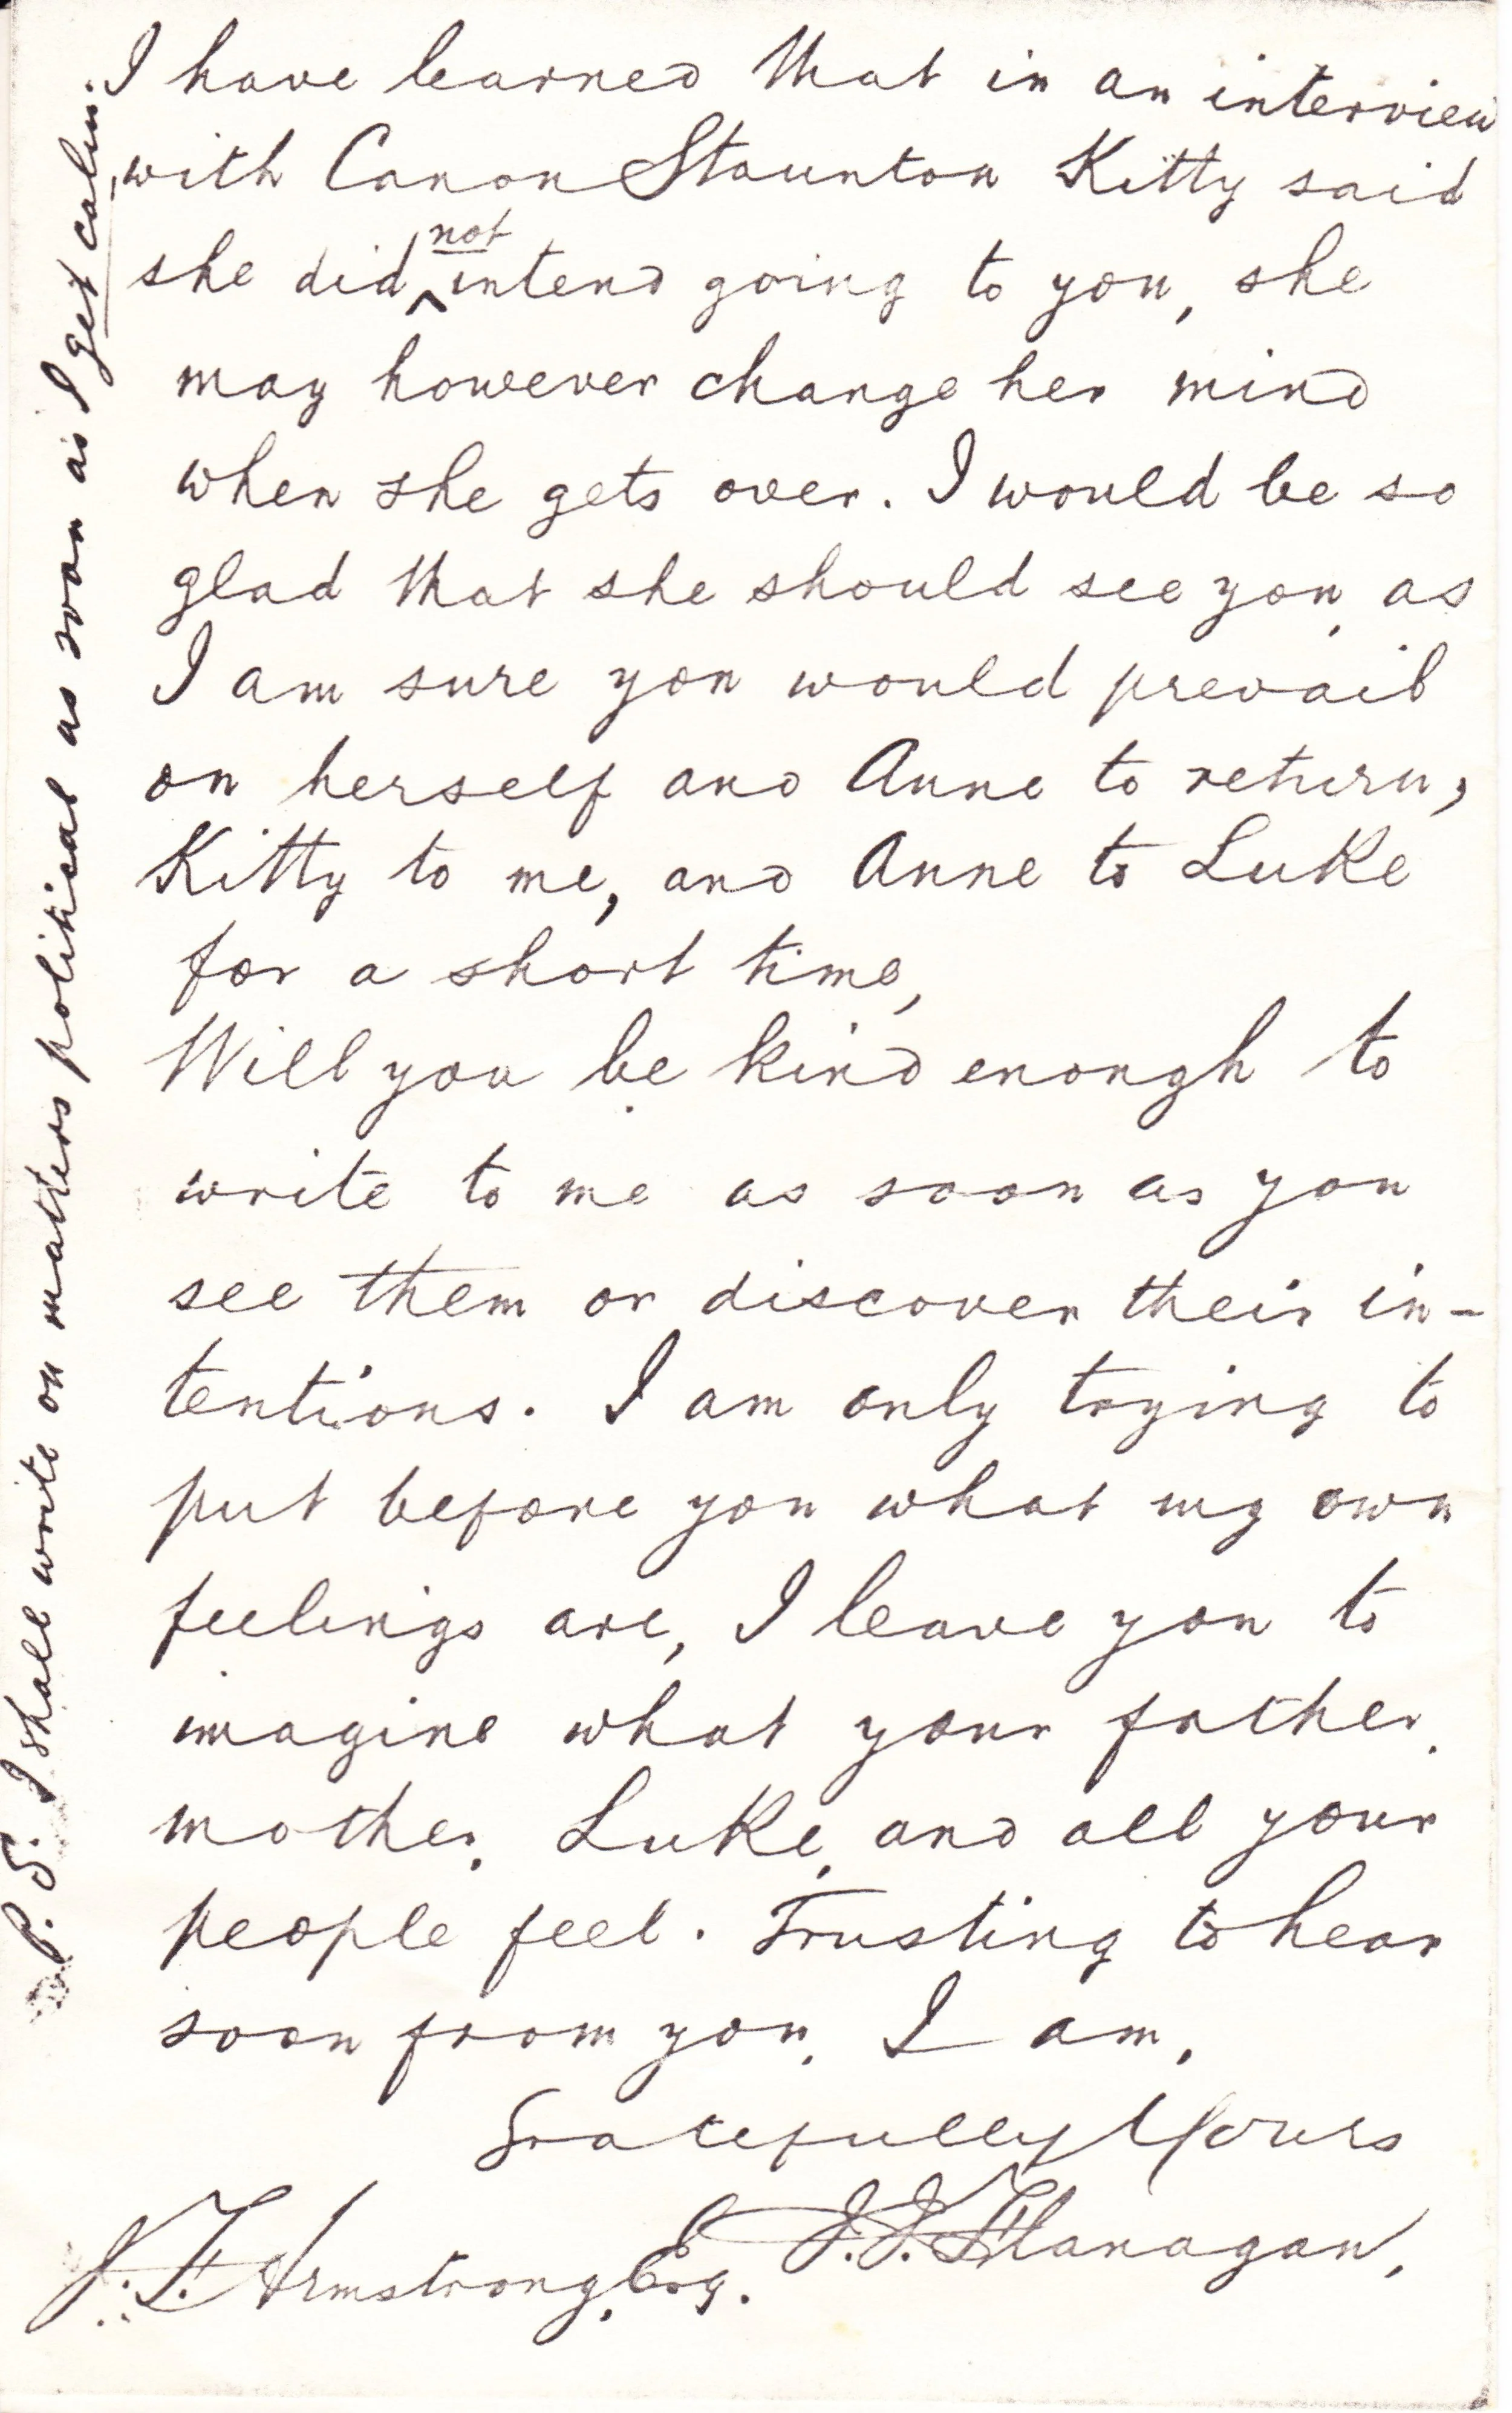 I have learned that in an interview
with Canon Staunton Kitty said
she did not intend going to you, she
may however change her mind
when she gets over. I would be so
glad that she should see you, as
I am sure you would prevail
on herself and Anne to return,
Kitty to me, and Anne to Luke
for a short time,
Will you be kind enough to
write to me as soon as you
see them or discover their in-
tentions. I am only trying to
put before you what my own
feelings are, I leave you to
imagine what your father,
mother, Luke, and all your
people feel. Trusting to hear
soon from you, I am,
Gratefully Yours
J. J. Flanagan,
J. F. Armstrong, Esq.
P. S. I shall write on matters political as soon as I get calm.